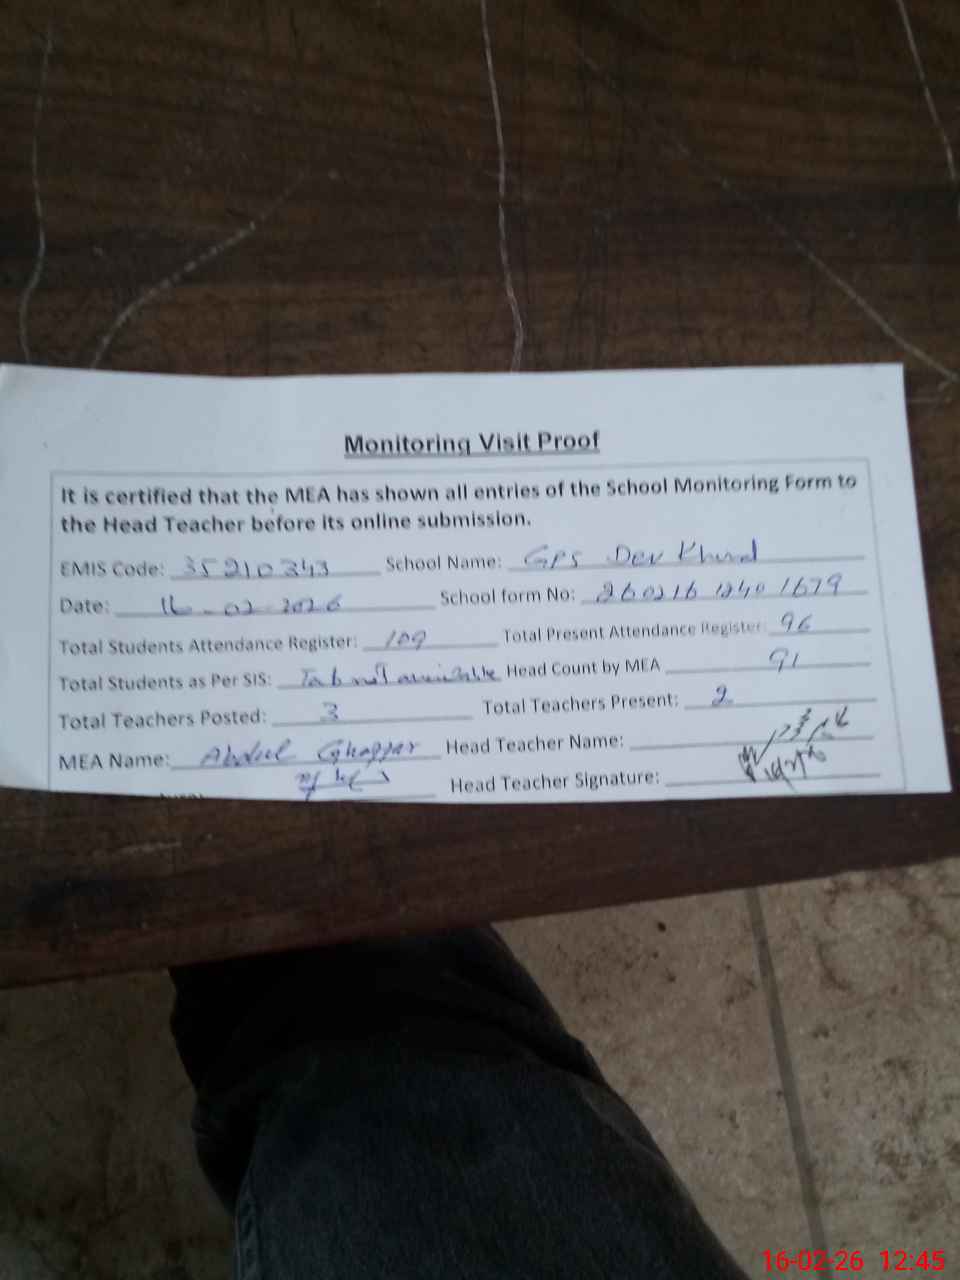 Monitoring Visit Proof
It is certified that the MEA has shown all entries of the School Monitoring Form to
the Head Teacher before its online submission.
EMIS Code: 35210343 School Name: GPS Dev Khurd
Date: 16-02-2026 School form No: 260216 1240 1679
Total Students Attendance Register: 109 Total Present Attendance Register: 96
Total Students as Per SIS: Tab not available Head Count by MEA 91
Total Teachers Posted: 3 Total Teachers Present: 2
MEA Name: Abdul Ghaffar Head Teacher Name:
Head Teacher Signature:
16-02-26 12:45